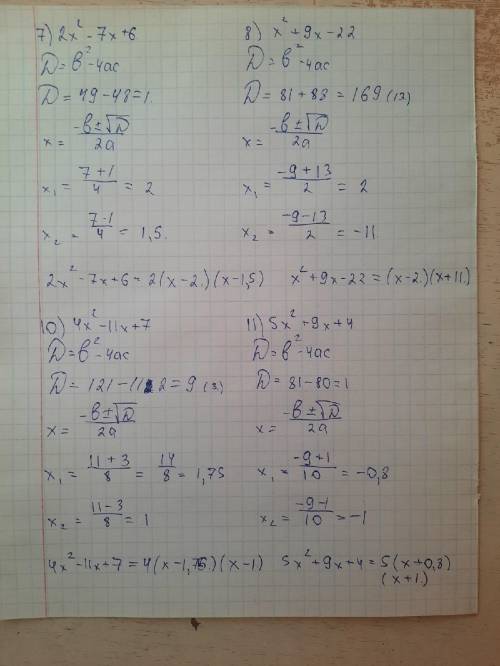 7) 2x² - 7x + 6
D = b² - 4ac
D = 49 - 48 = 1.
x = (-b ± √D) / 2a
x₁ = (7 + 1) / 4 = 2
x₂ = (7 - 1) / 4 = 1,5.
2x² - 7x + 6 = 2(x - 2.)(x - 1,5)
8) x² + 9x - 22
D = b² - 4ac
D = 81 + 88 = 169 (13)
x = (-b ± √D) / 2a
x₁ = (-9 + 13) / 2 = 2
x₂ = (-9 - 13) / 2 = -11
x² + 9x - 22 = (x - 2.)(x + 11.)
10) 4x² - 11x + 7
D = b² - 4ac
D = 121 - 112 = 9 (3.)
x = (-b ± √D) / 2a
x₁ = (11 + 3) / 8 = 14 / 8 = 1,75
x₂ = (11 - 3) / 8 = 1
4x² - 11x + 7 = 4(x - 1,75)(x - 1)
11) 5x² + 9x + 4
D = b² - 4ac
D = 81 - 80 = 1
x = (-b ± √D) / 2a
x₁ = (-9 + 1) / 10 = -0,8
x₂ = (-9 - 1) / 10 = -1
5x² + 9x + 4 = 5(x + 0,8)
(x + 1.)